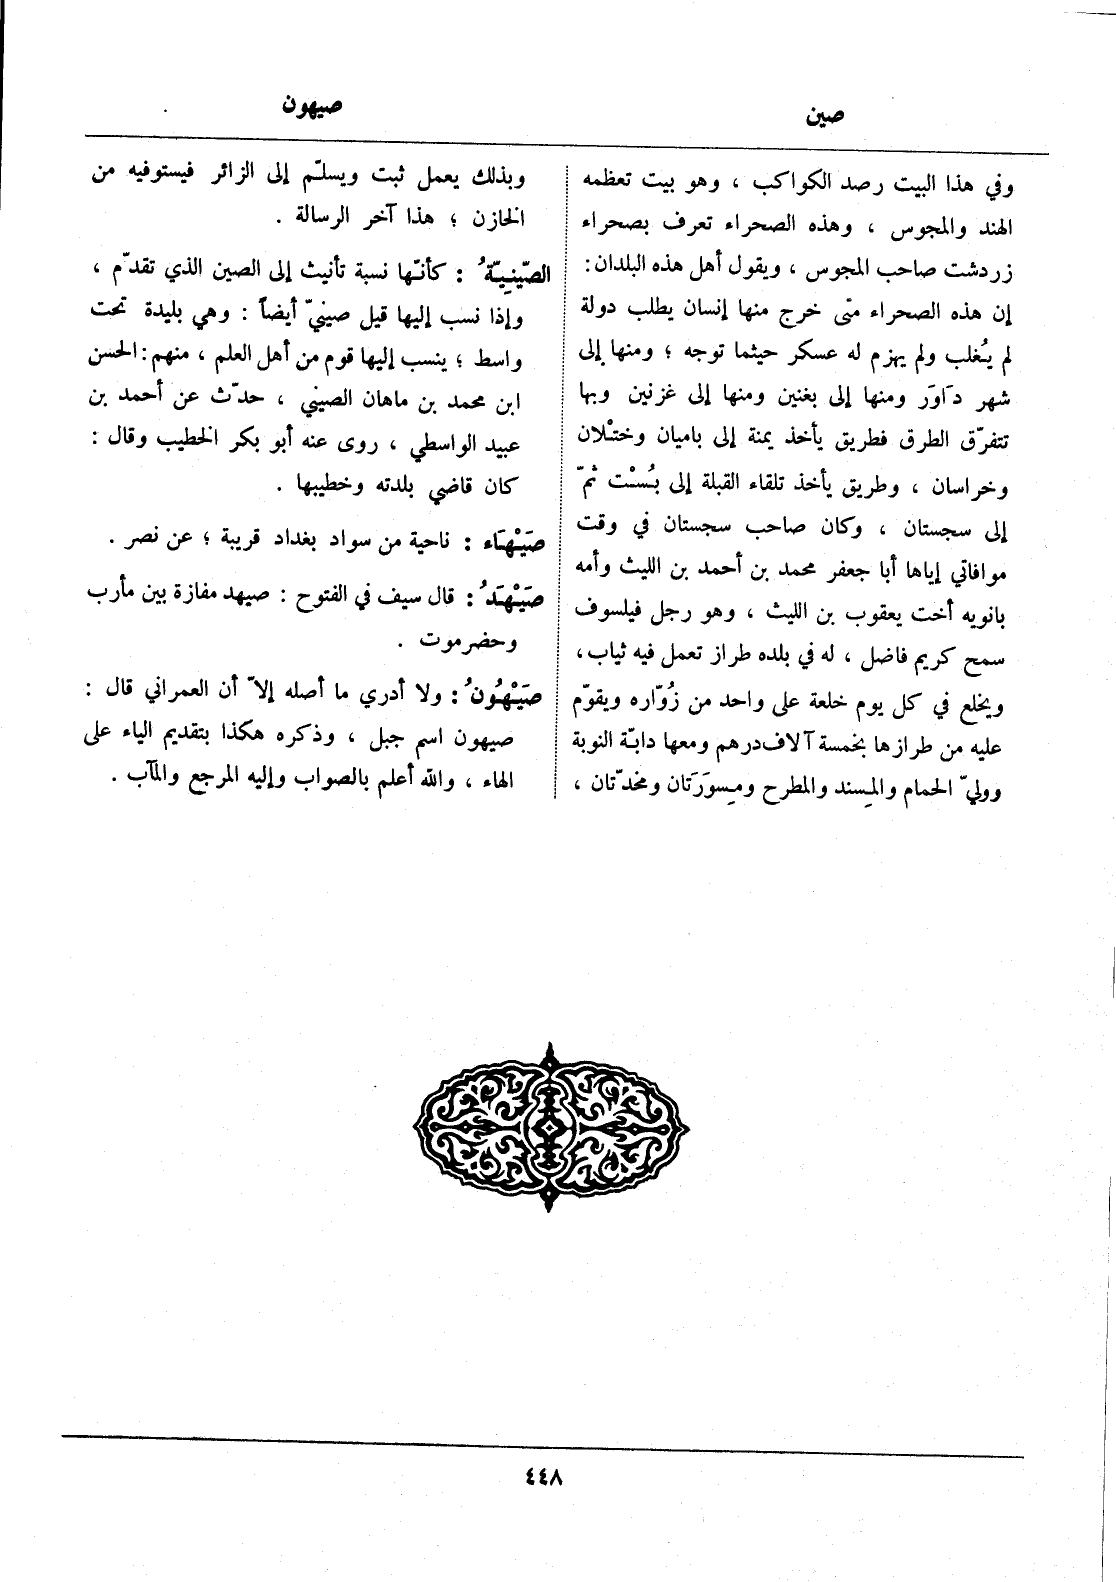 صين
صيهون
وفي هذا البيت رصد الكواكب ، وهو بيت تعظمه
الهند والمجوس ، وهذه الصحراء تعرف بصحراء
زردشت صاحب المجوس ، ويقول أهل هذه البلدان :
إن هذه الصحراء متى خرج منها إنسان يطلب دولة
لم يُغلب ولم يهزم له عسكر حيثما توجه ؛ ومنها إلى
شهر دَاوَر ومنها إلى بغنين ومنها إلى غزنين وبها
تتفرّق الطرق فطريق يأخذ يمنة إلى باميان وختّلان
وخراسان ، وطريق يأخذ تلقاء القبلة إلى بُسْت ثمّ
إلى سجستان ، وكان صاحب سجستان في وقت
موافاتي إياها أبا جعفر محمد بن أحمد بن الليث وأمه
بانويه أخت يعقوب بن الليث ، وهو رجل فيلسوف
سمح كريم فاضل ، له في بلده طراز تعمل فيه ثياب ،
ويخلع في كل يوم خلعة على واحد من زُوّاره ويقوّم
عليه من طرازها بخمسة آلاف درهم ومعها دابّة النوبة
ووليّ الحمام والمِسند والمطرح ومِسوَرَتان ومخدّتان ،
وبذلك يعمل ثبت ويسلّم إلى الزائر فيستوفيه من
الخازن ؛ هذا آخر الرسالة .
الصّينِيّةُ : كأنّها نسبة تأنيث إلى الصين الذي تقدّم ،
وإذا نسب إليها قيل صينيّ أيضاً : وهي بليدة تحت
واسط ؛ ينسب إليها قوم من أهل العلم ، منهم : الحسن
ابن محمد بن ماهان الصيني ، حدّث عن أحمد بن
عبيد الواسطي ، روى عنه أبو بكر الخطيب وقال :
كان قاضي بلدته وخطيبها .
صَيْهَاء : ناحية من سواد بغداد قريبة ؛ عن نصر .
صَيْهَدُ : قال سيف في الفتوح : صيهد مفازة بين مأرب
وحضرموت .
صَيْهُونُ : ولا أدري ما أصله إلاّ أن العمراني قال :
صيهون اسم جبل ، وذكره هكذا بتقديم الياء على
الهاء ، والله أعلم بالصواب وإليه المرجع والمآب .
٤٤٨